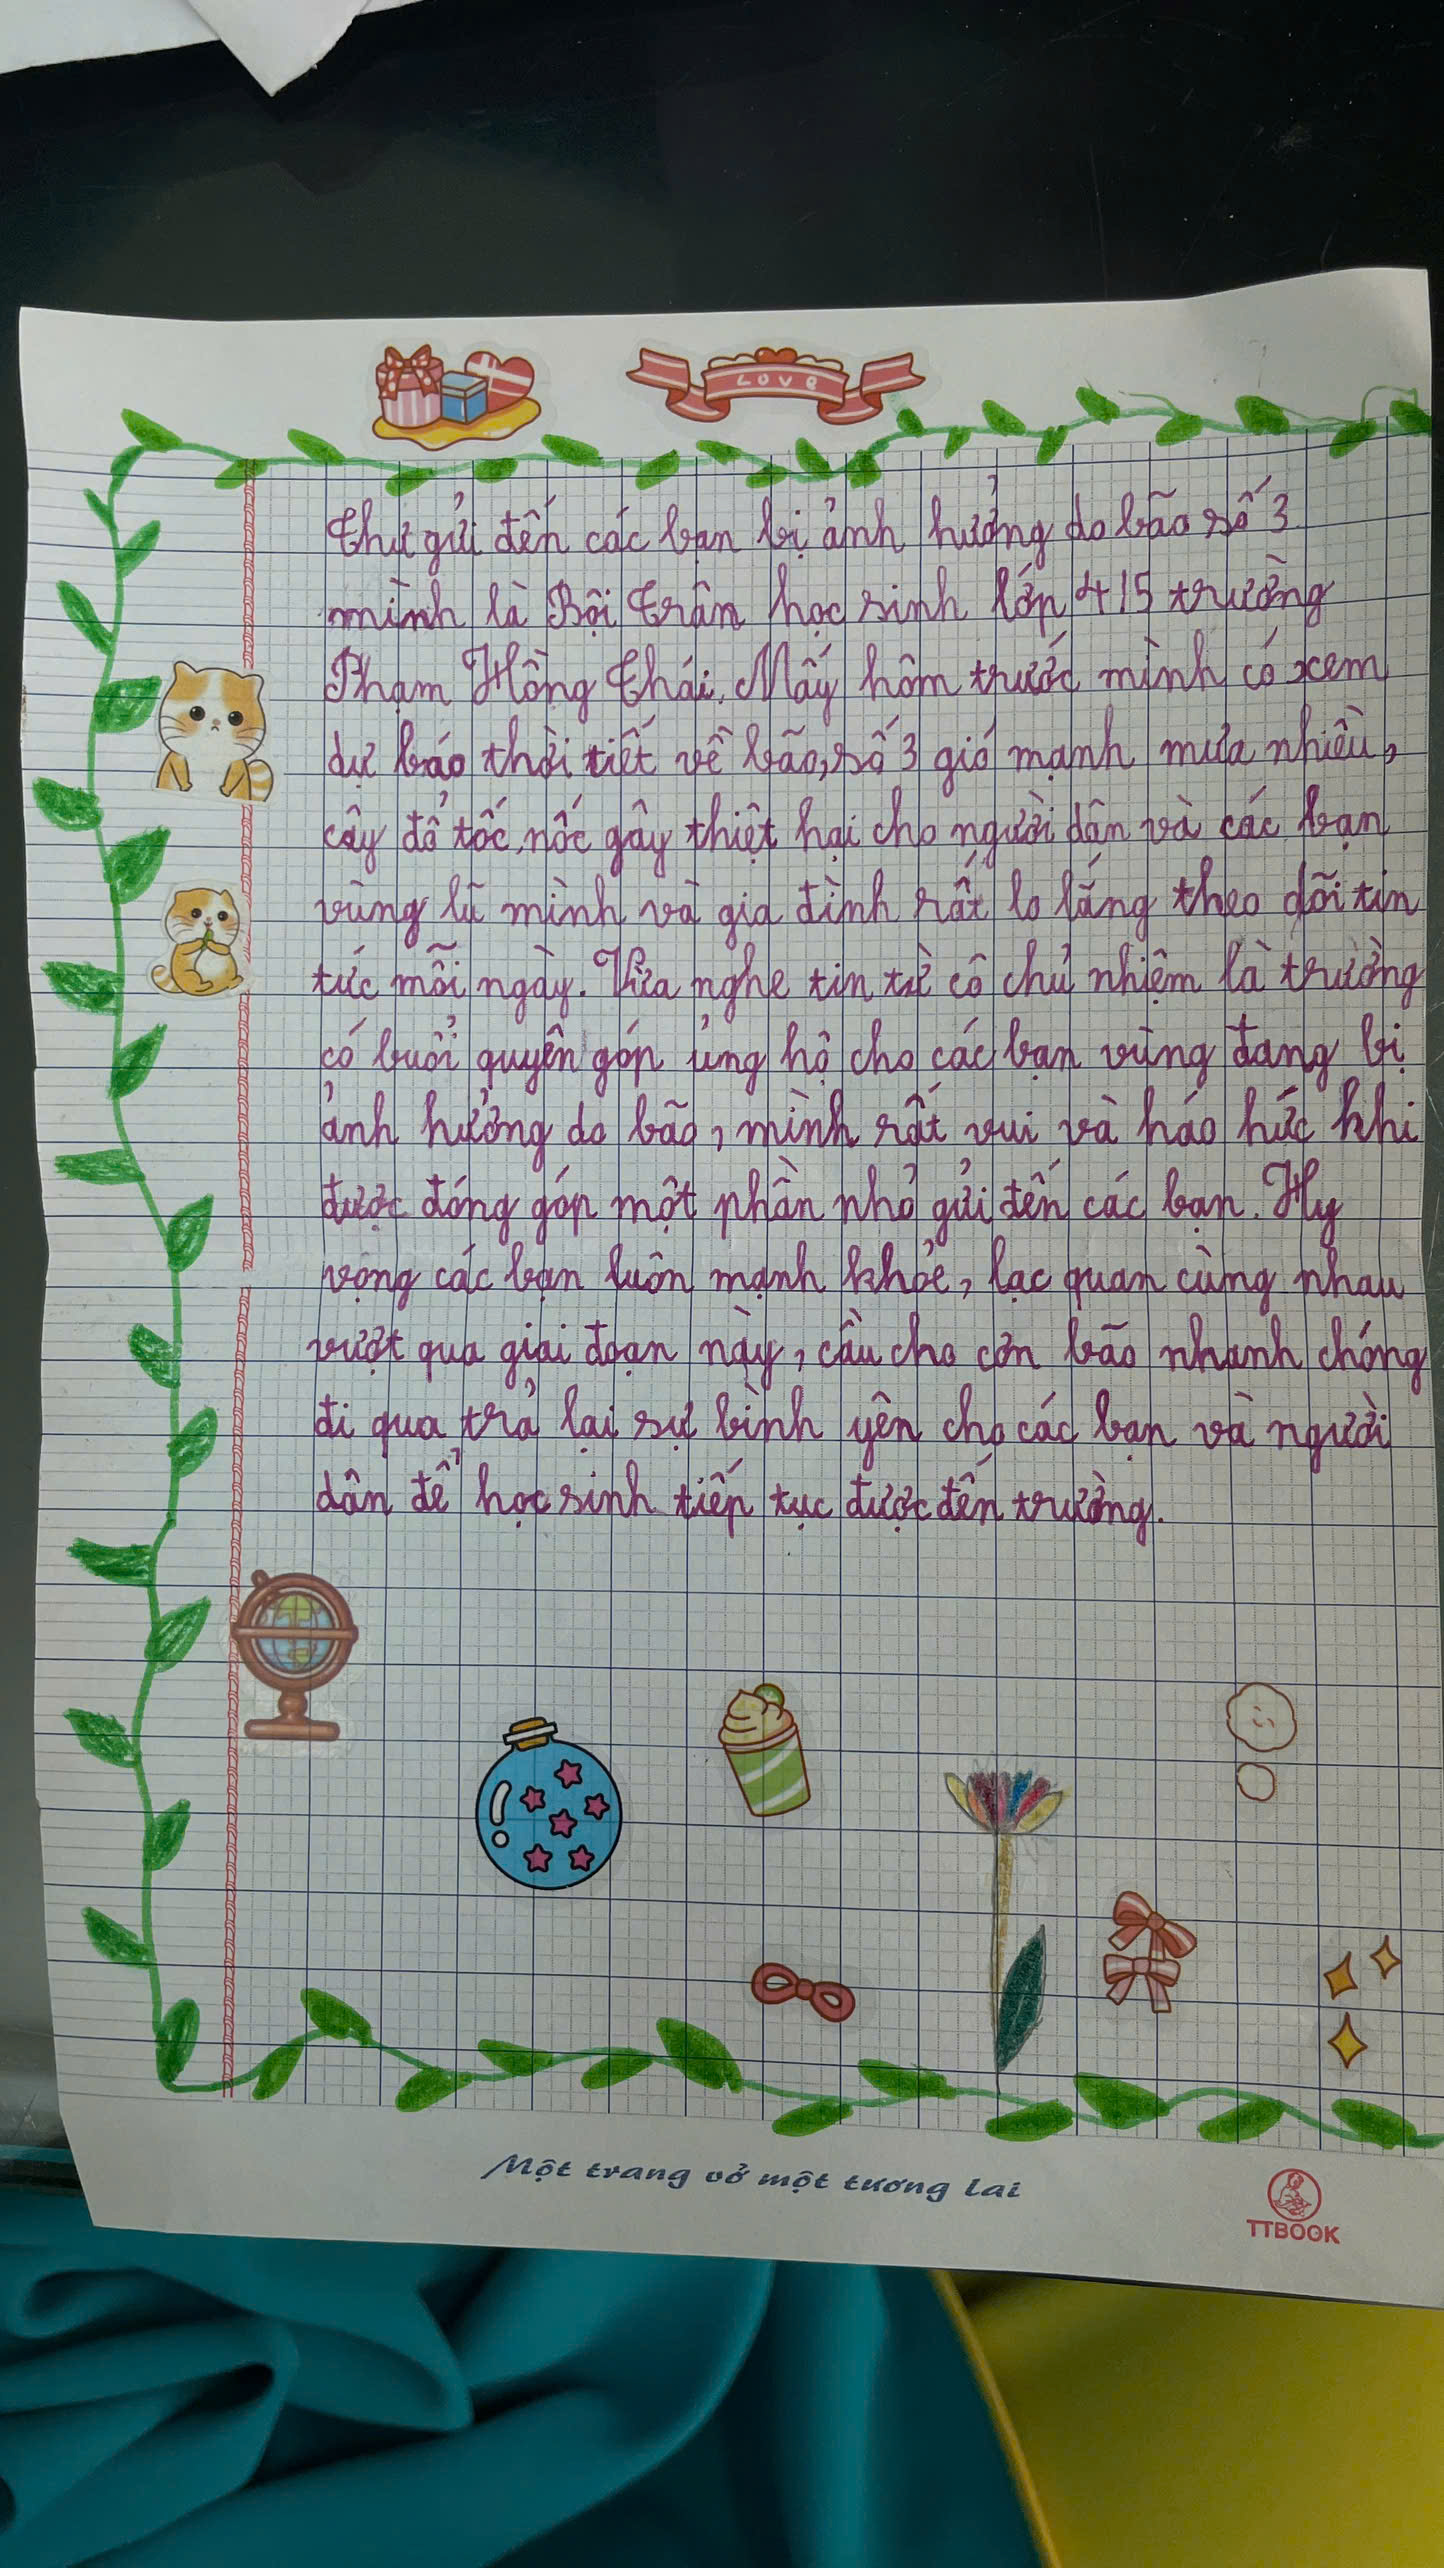 LOVE
Thư gửi đến các bạn bị ảnh hưởng do bão số 3
mình là Bội Trân học sinh lớp 4/5 trường
Phạm Hồng Thái. Mấy hôm trước mình có xem
dự báo thời tiết về bão, số 3 gió mạnh mưa nhiều,
cây đổ tốc, nốc gây thiệt hại cho người dân và các bạn
vùng lũ mình và gia đình rất lo lắng theo dõi tin
tức mỗi ngày. Vừa nghe tin từ cô chủ nhiệm là trường
có buổi quyên góp ủng hộ cho các bạn vùng đang bị
ảnh hưởng do bão, mình rất vui và háo hức khi
được đóng góp một phần nhỏ gửi đến các bạn. Hy
vọng các bạn luôn mạnh khỏe, lạc quan cùng nhau
vượt qua giai đoạn này, cầu cho cơn bão nhanh chóng
đi qua trả lại sự bình yên cho các bạn và người
dân để học sinh tiếp tục được đến trường.
Một trang vở một tương lai
TTBOOK